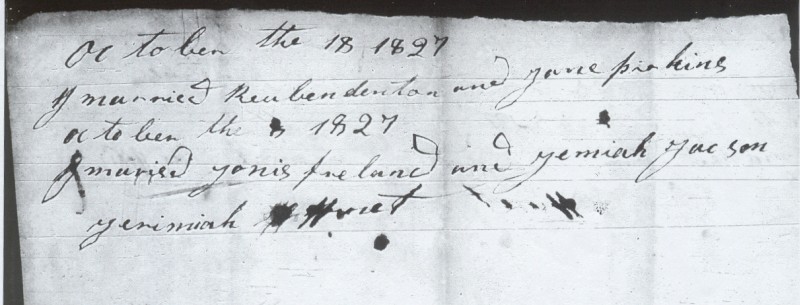 october the 18 1827
I married Reubendenton and Jane perkins
october the 8 1827
I maried yonis freland and Jemiah Jacson
yerimiah